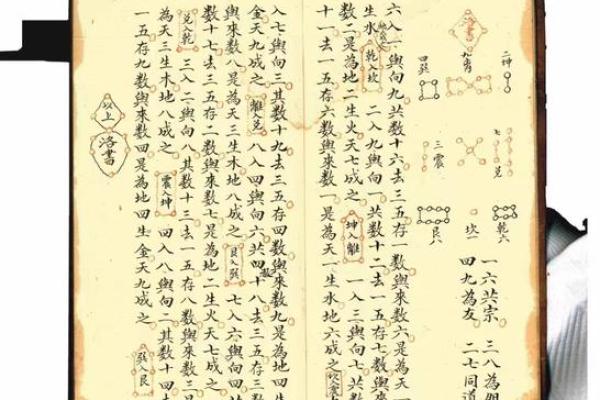 洛書
二坤
九离
四巽
七兑
三震
乾六
坎一
艮八
一六共宗 三八為朋
四九為友 二七同道
六入一與向九共數十六去三五存一數與來數六是為天一
生水 乾入坎 二入九與向一共數十二去一五存七數與來
數二是為地二生火天七成之 坤入離 一入三與向七共數
十一去一五存六數與來數一是為天一生水地六成之 坎入震
入七與向三其數十九去三五存四數與來數九是為地四生
金天九成之 離入兌 八入四與向六共四十八去三五存三數
與來數八是為天三生木地八成之 艮入巽 七入六與向四共
數十七去三五存二數與來數七是為地二生火天七成之
兌入乾 三入二與向八其數十三去一五存八數與來數三
為天三生木地八成之 震入坤 四入八與向二其數十四去
一五存九數與來數四是為地四生金天九成之 巽入艮
以上
洛書